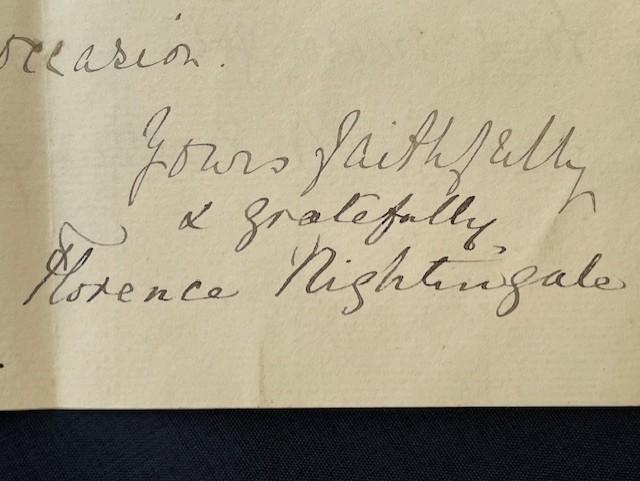 occasion.
Yours faithfully
& gratefully
Florence Nightingale